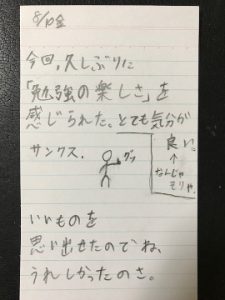 8/10金
今回、久しぶりに
「勉強の楽しさ」を
感じられた。とても気分が
良い。
↑
なんじゃ
そりゃ。
サンクス.
グッ
いいものを
思い出せたのでね、
うれしかったのさ。